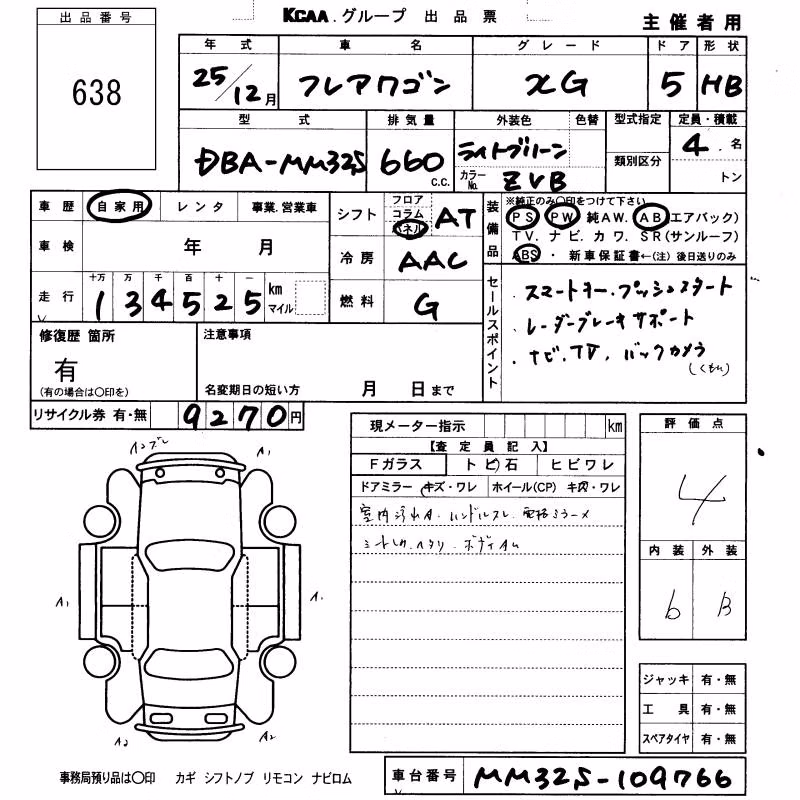 出品番号
638
KCAA.グループ 出品票
主催者用
年式 車名 グレード ドア 形状
25/12月 フレアワゴン XG 5 HB
型式 排気量 外装色 色替 型式指定 定員・積載
DBA-MM32S 660 c.c. ライトブルーン カラーNo. ZVB 類別区分 4 名 トン
車歴 自家用 レンタ 事業.営業車
シフト フロア コラム パネル AT
装備品 ※純正のみ〇印をつけて下さい
PS PW 純AW. AB エアバック)
TV. ナビ. カワ. SR(サンルーフ)
ABS ・ 新車保証書←(注) 後日送りのみ
車検 年 月
冷房 AAC
走行 十万 万 千 百 十 一 km マイル
1 3 4 5 2 5
燃料 G
セールスポイント
・スマートキー・プッシュスタート
・レーダーブレーキサポート
・ナビ、TV、バックカメラ
(くもり)
修復歴 箇所
有
(有の場合は〇印を)
注意事項
名変期日の短い方 月 日まで
リサイクル券 有・無 9270円
現メーター指示 km
【査定員記入】
Fガラス トビ石 ヒビワレ
ドアミラー キズ・ワレ ホイール(CP) キズ・ワレ
室内汚れA・ハンドルスレ・
評価点
4
内装 外装
6 B
A1
A1
A1
A2
A2
ジャッキ 有・無
工具 有・無
スペアタイヤ 有・無
事務局預り品は〇印 カギ シフトノブ リモコン ナビロム
車台番号 MM32S-109766